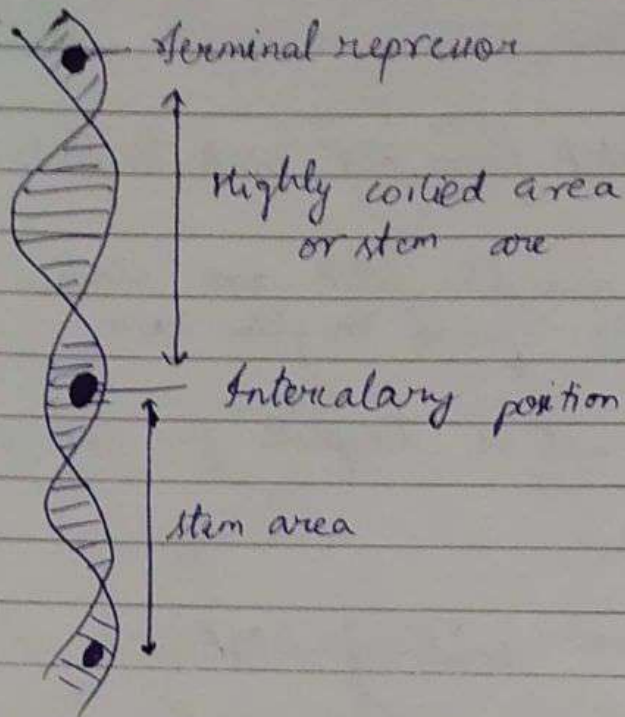 Terminal repressor
Highly coilied area
or stem are
Intercalary position
stem area